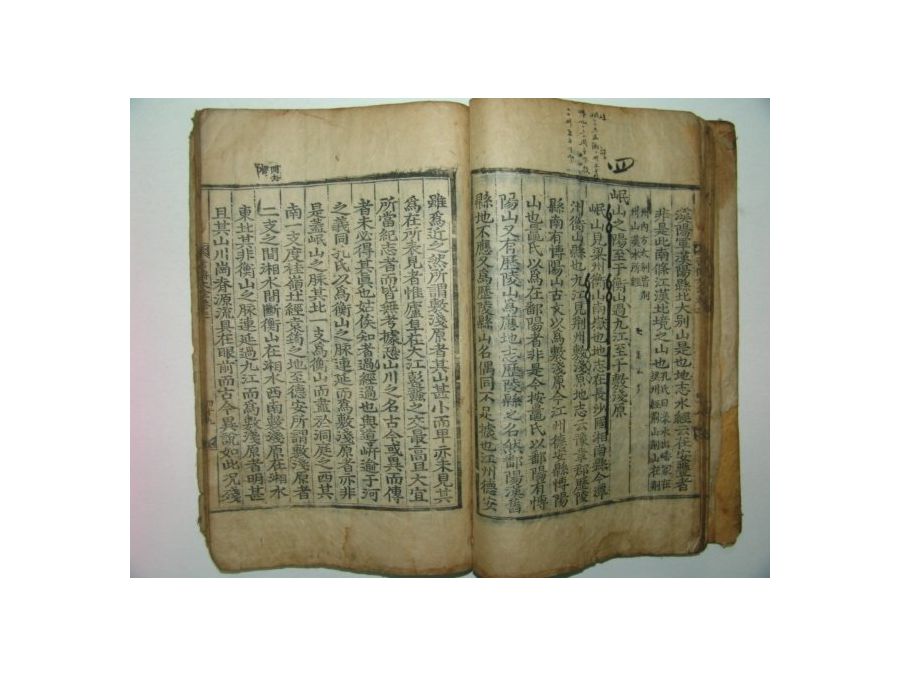 四
漢陽軍漢陽縣北大別山是也地志水經云在安豐者
非是此南條江漢北境之山也
岷山之陽至于衡山過九江至于敷淺原
岷山見梁州衡山南嶽也地志在長沙國湘南縣今潭
州衡山縣也九江見荆州敷淺原地志云豫章郡歷陵
縣南有愽陽山古文以爲敷淺原今江州德安縣愽陽
山也鼂氏以爲在鄱陽者非是今按鼂氏以鄱陽有愽
陽山又有歷陵山爲應地志歷陵縣之名然鄱陽漢舊
縣地不應又爲歷陵縣山名偶同不足據也江州德安
雖爲近之然所謂敷淺原者其山甚小而卑亦未見其
爲在所表見者惟廬阜在大江彭蠡之交最高且大宜
所當紀志者而皆無考據恐山川之名古今或異而傳
者未必得其眞也姑俟知者過經過也與導岍逾于河
之義同孔氏以爲衡山之脉連延而爲敷淺原者亦非
是蓋岷山之脉其北一支爲衡山而盡於洞庭之西其
南一支度桂嶺北經袁筠之地至德安所謂敷淺原者
二支之間湘水間斷衡山在湘水西南敷淺原在湘水
東北其非衡山之脉連延過九江而爲敷淺原者明甚
且其山川崗脊源流具在眼前而古今異說如此況殘